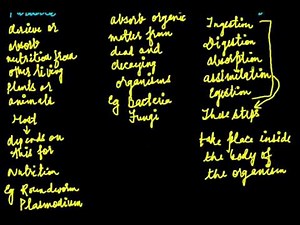 derive or
absorb
nutrition from
other living
plants or
animals
Host
depends on
this for
Nutrition
Eg Roundworm
Plasmodium
absorb organic
matter from
dead and
decaying
organisms
Eg Bacteria
Fungi
Ingestion
Digestion
absorption
assimilation
Egestion
These steps
take place inside
the body of
the organism